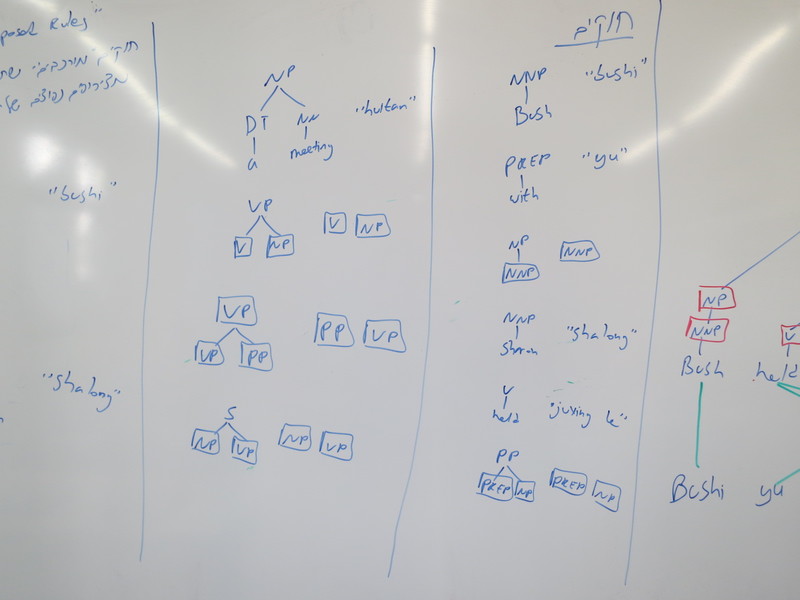 Rules"
"bushi"
"shalong"
NP
DT NN "huitan"
a meeting
VP
V NP V NP
VP
VP PP PP VP
S
NP VP NP VP
חוקים
NNP "bushi"
Bush
PREP "yu"
with
NP
NNP NNP
NNP
Sharon "shalong"
V
held "juxing le"
PP
PREP NP PREP NP
NP
NNP V
Bush held
Bushi yu